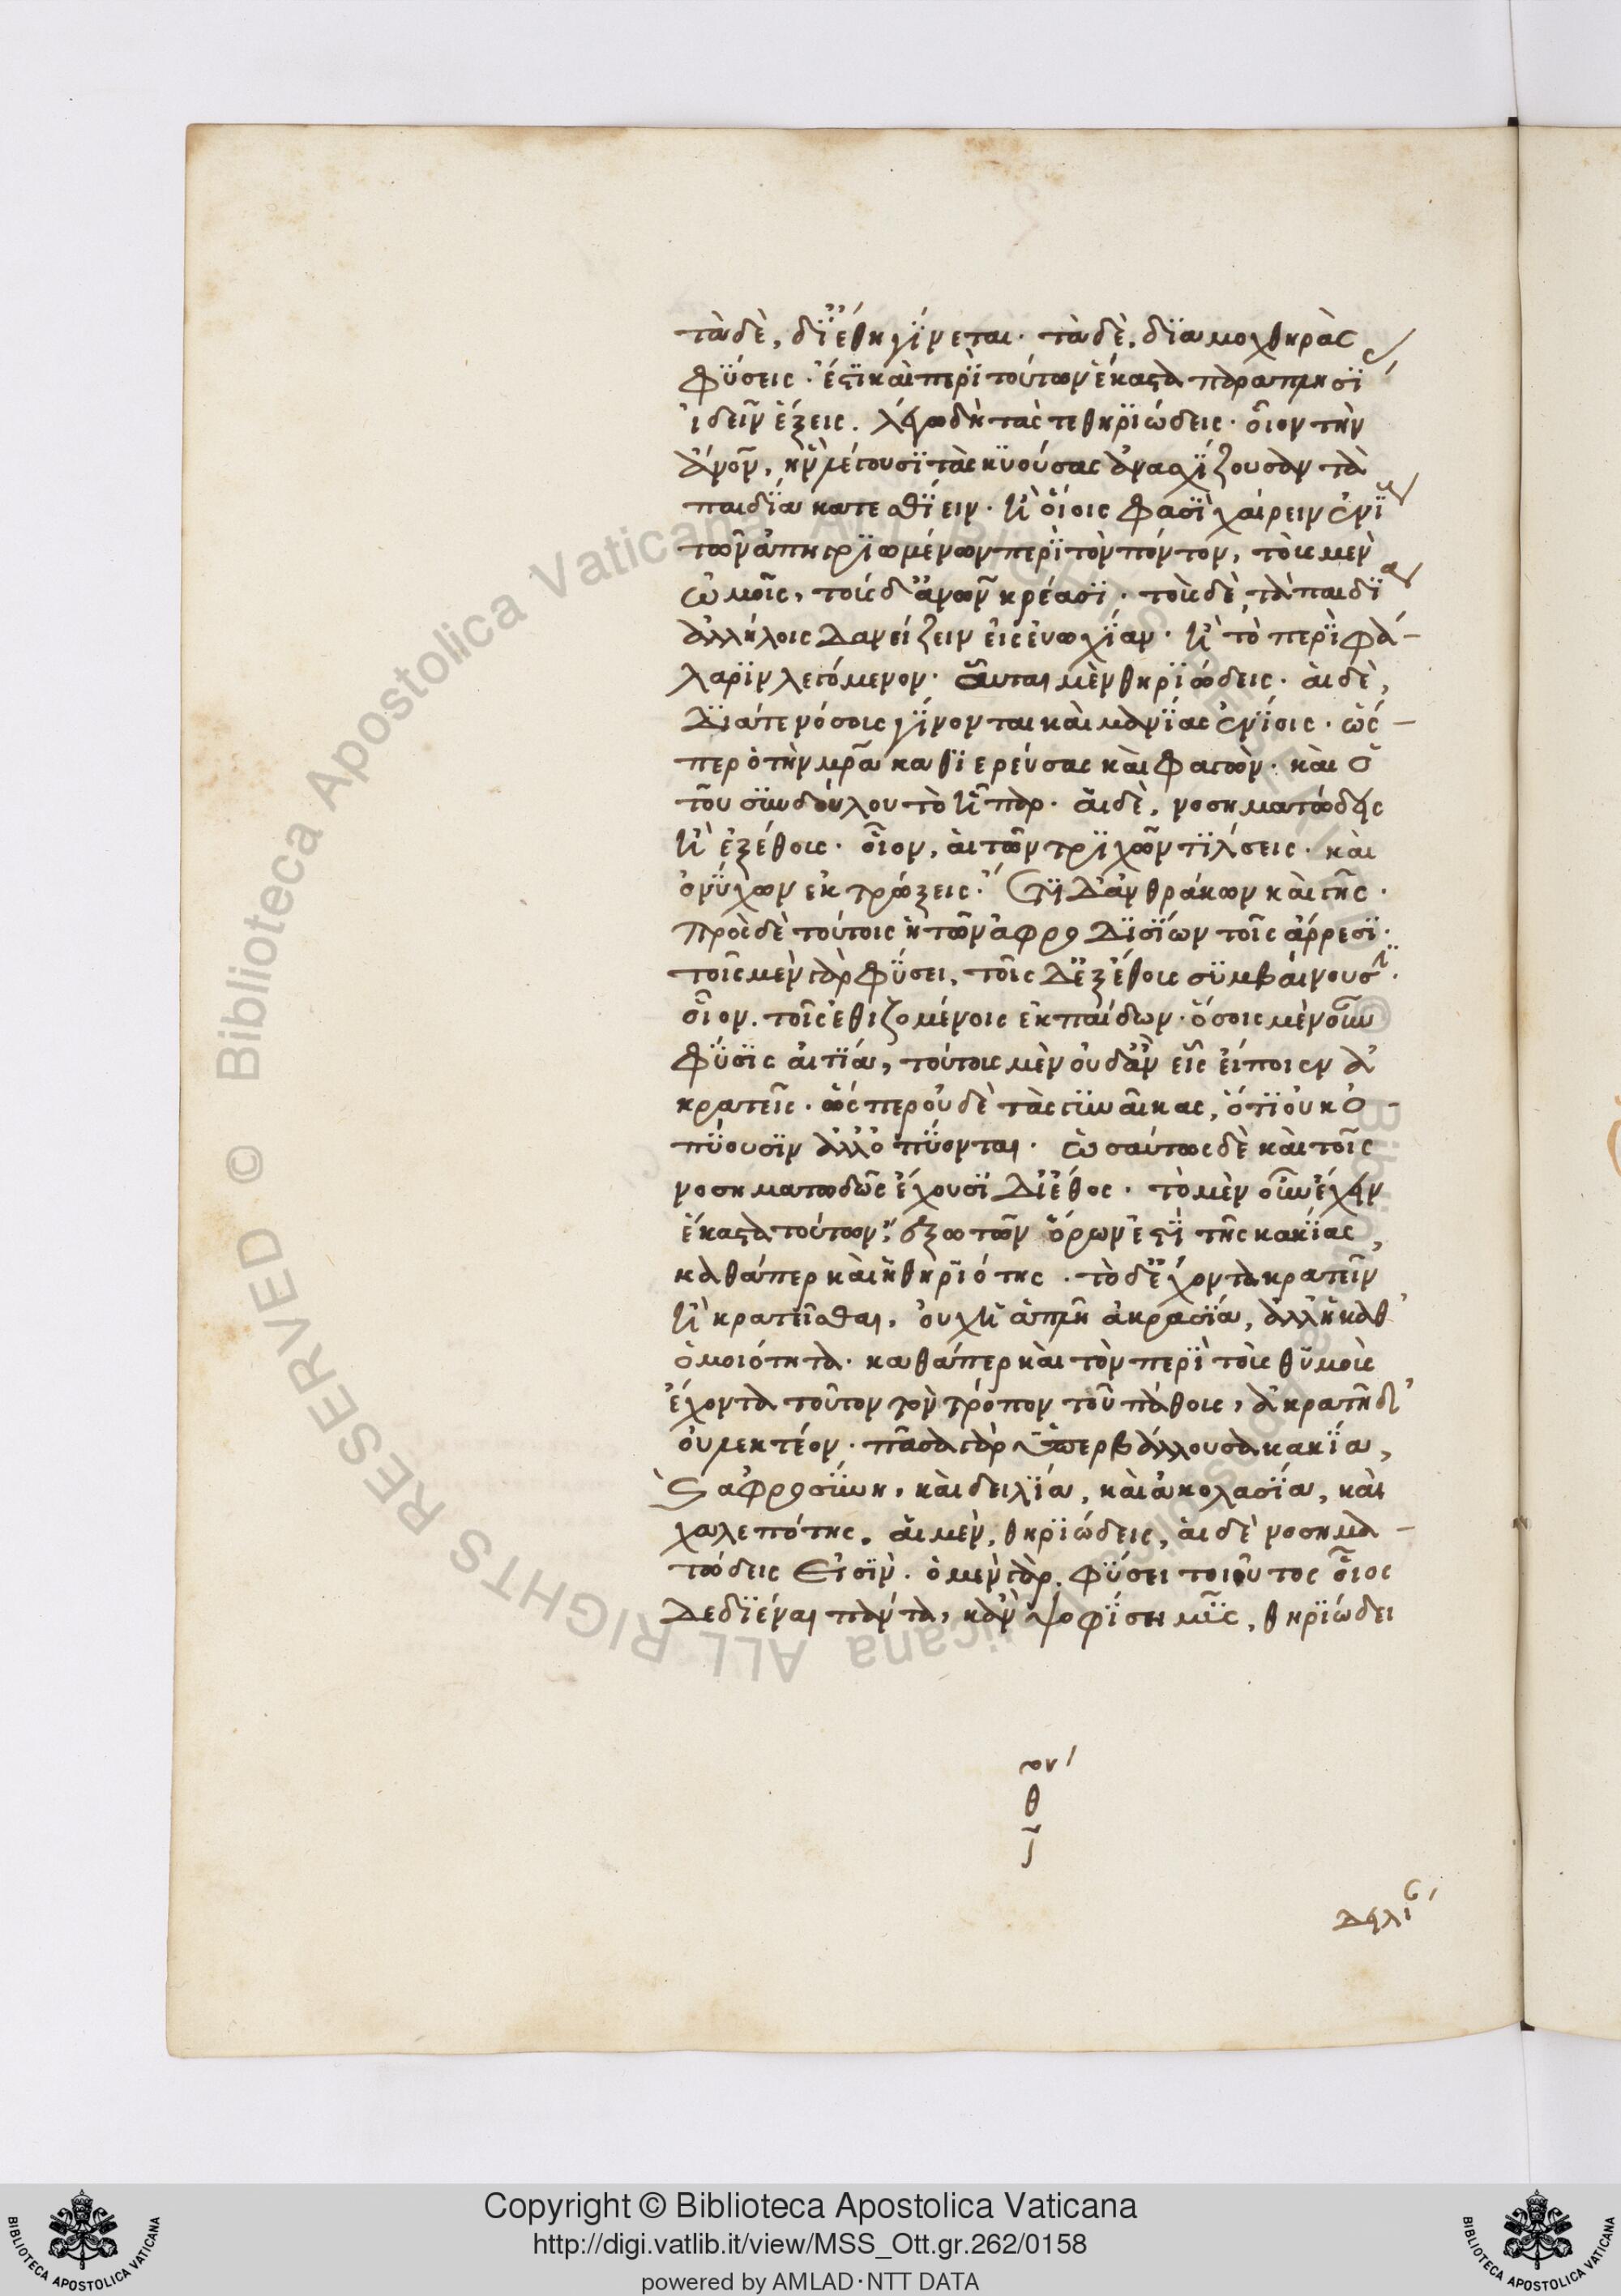 τὰ δὲ, δϊ' ἔθη γίνεται· τὰ δὲ, δϊα μοχθηρὰς
φύσεις· ἔστι καὶ περὶ τούτων ἕκαστα παραπλησϊ
ἰδεῖν ἕξεις. λέγω δὴ τάς τε θηρϊώδεις· οἷον τὴν
ἄνον, ἣν λέγουσϊ τὰς κϋούσας ἀνασχίζουσαν τὰ
παιδία κατεσθίειν· ἢ οἵοις φασϊ χαίρειν ἐνί
τῶν ἀπηγρϊωμένων περὶ τὸν πόντον, τοὺς μὲν
ὠμοῖς, τοὺς δ' ἀνων κρέασϊ· τοὺς δὲ, τὰ παιδϊα
ἀλλήλοις δανείζειν εἰς ἐυωχίαν· ἢ τὸ περὶ φά-
λαρϊν λεγόμενον· αὗται μὲν θηρϊώδεις· αἱ δὲ,
διά τε νόσους γίνονται καὶ μανίας ἐνίοις· ὥσ-
περ ὁ τὴν μρα καθϊερεύσας καὶ φαγών· καὶ ὁ
τοῦ συνδούλου τὸ ἧπαρ· αἱ δὲ, νοσηματώδεις
ἢ ἐξ ἔθους· οἷον, αἱ τῶν τριχῶν τίλσεις· καὶ
ὀνύχων ἐκτρώξεις· ἔτι δ' ἀνθράκων καὶ γῆς·
πρὸς δὲ τούτοις ἡ τῶν ἀφροδϊσίων τοῖς ἄρρεσϊ·
τοῖς μὲν γὰρ φύσει, τοῖς δ' ἐξ ἔθους συμβαίνουσϊ·
οἷον. τοῖς ἐθιζομένοις ἐκ παίδων· ὅσοις μὲν οὖν
φύσις αἰτία, τούτους μὲν οὐδ' ἂν εἷς εἴποιεν ἀ
κρατεῖς· ὥσπερ οὐδὲ τὰς γυναῖκας, ὅτι οὐκ ὀ-
πύουσϊν ἀλλ' ὀπύονται· ὡσαύτως δὲ καὶ τοῖς
νοσηματωδῶς ἔχουσϊ δϊ' ἔθος· τὸ μὲν οὖν ἔχειν
ἕκαστα τούτων, ἔξω τῶν ὅρων ἐστὶ τῆς κακίας,
καθάπερ καὶ ἡ θηρϊότης· τὸ δ' ἔχοντα κρατεῖν
ἢ κρατεῖσθαι, οὐχ ἡ ἁπλῆ ἀκρασία, ἀλλ' ἡ καθ'
ὁμοιότητα· καθάπερ καὶ τὸν περὶ τοὺς θυμοὺς
ἔχοντα τοῦτον τὸν τρόπον τοῦ πάθους, ἀκρατῆ δ'
οὐ λεκτέον· πᾶσα γὰρ ὑπερβάλλουσα κακία,
ἀφροσύνη, καὶ δειλία, καὶ ἀκολασία, καὶ
χαλεπότης. αἱ μὲν, θηρϊώδεις, αἱ δὲ νοσημα-
τώδεις εἰσίν· ὁ μὲν γὰρ. φύσει τοιοῦτος οἷος
δεδϊέναι πάντα, κἂν ψοφήσῃ μῦς, θηρϊώδει
θ